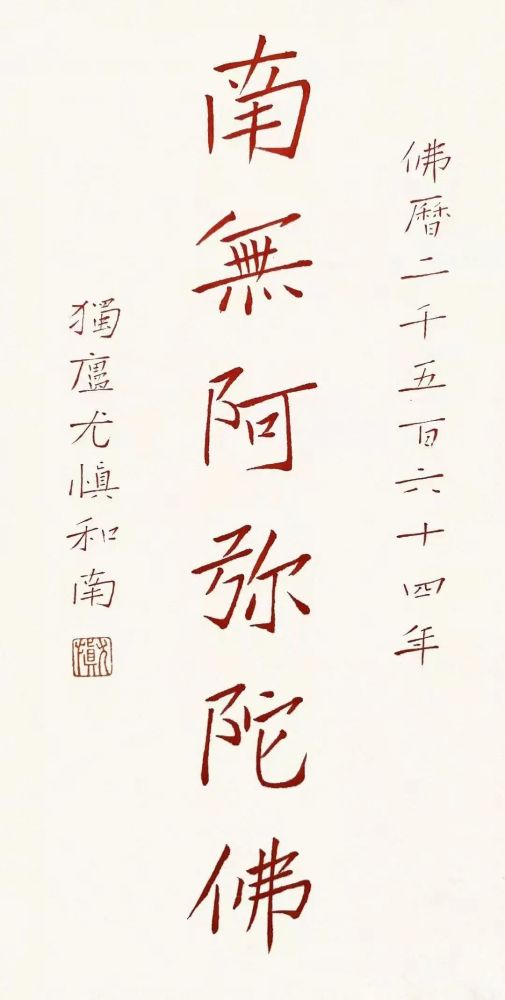 佛曆二千五百六十四年
南無阿弥陀佛
獨廬尤慎和南